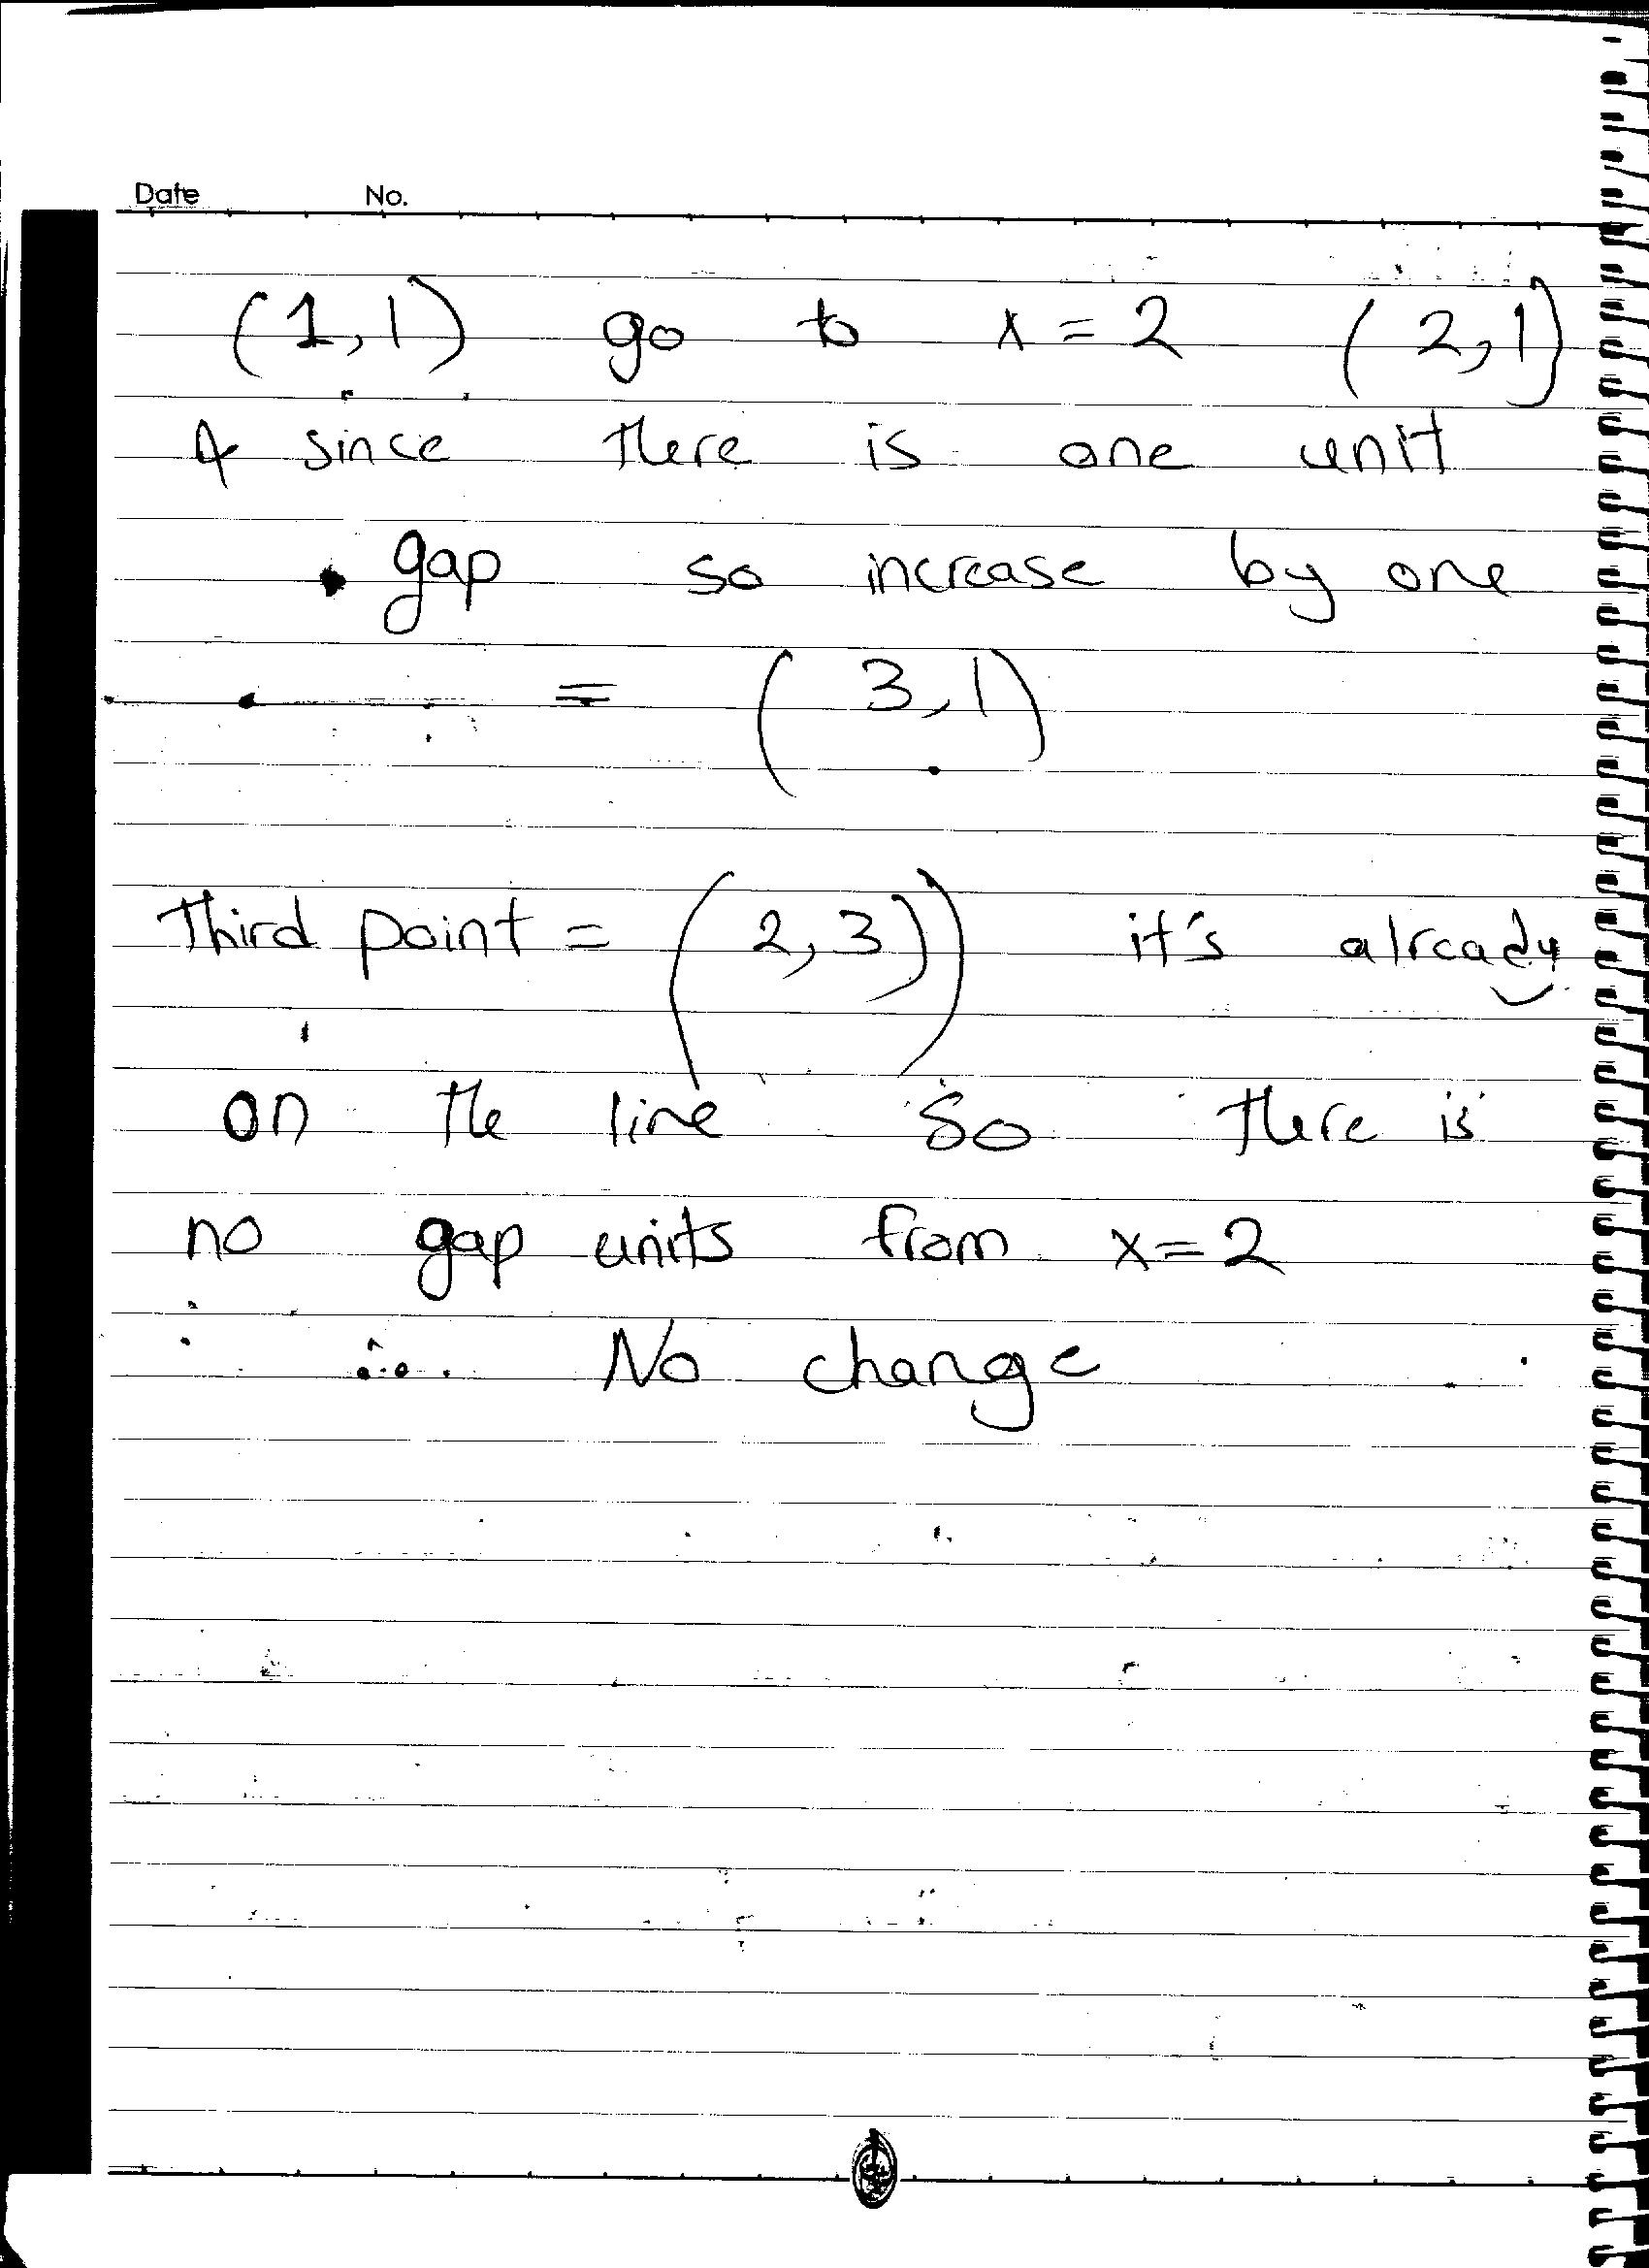 Date No.
(1,1) go to x = 2 (2,1)
& since there is one unit
gap so increase by one
= (3,1)
Third point = (2,3)) it's already
on the line so there is
no gap units from x=2
∴ No change